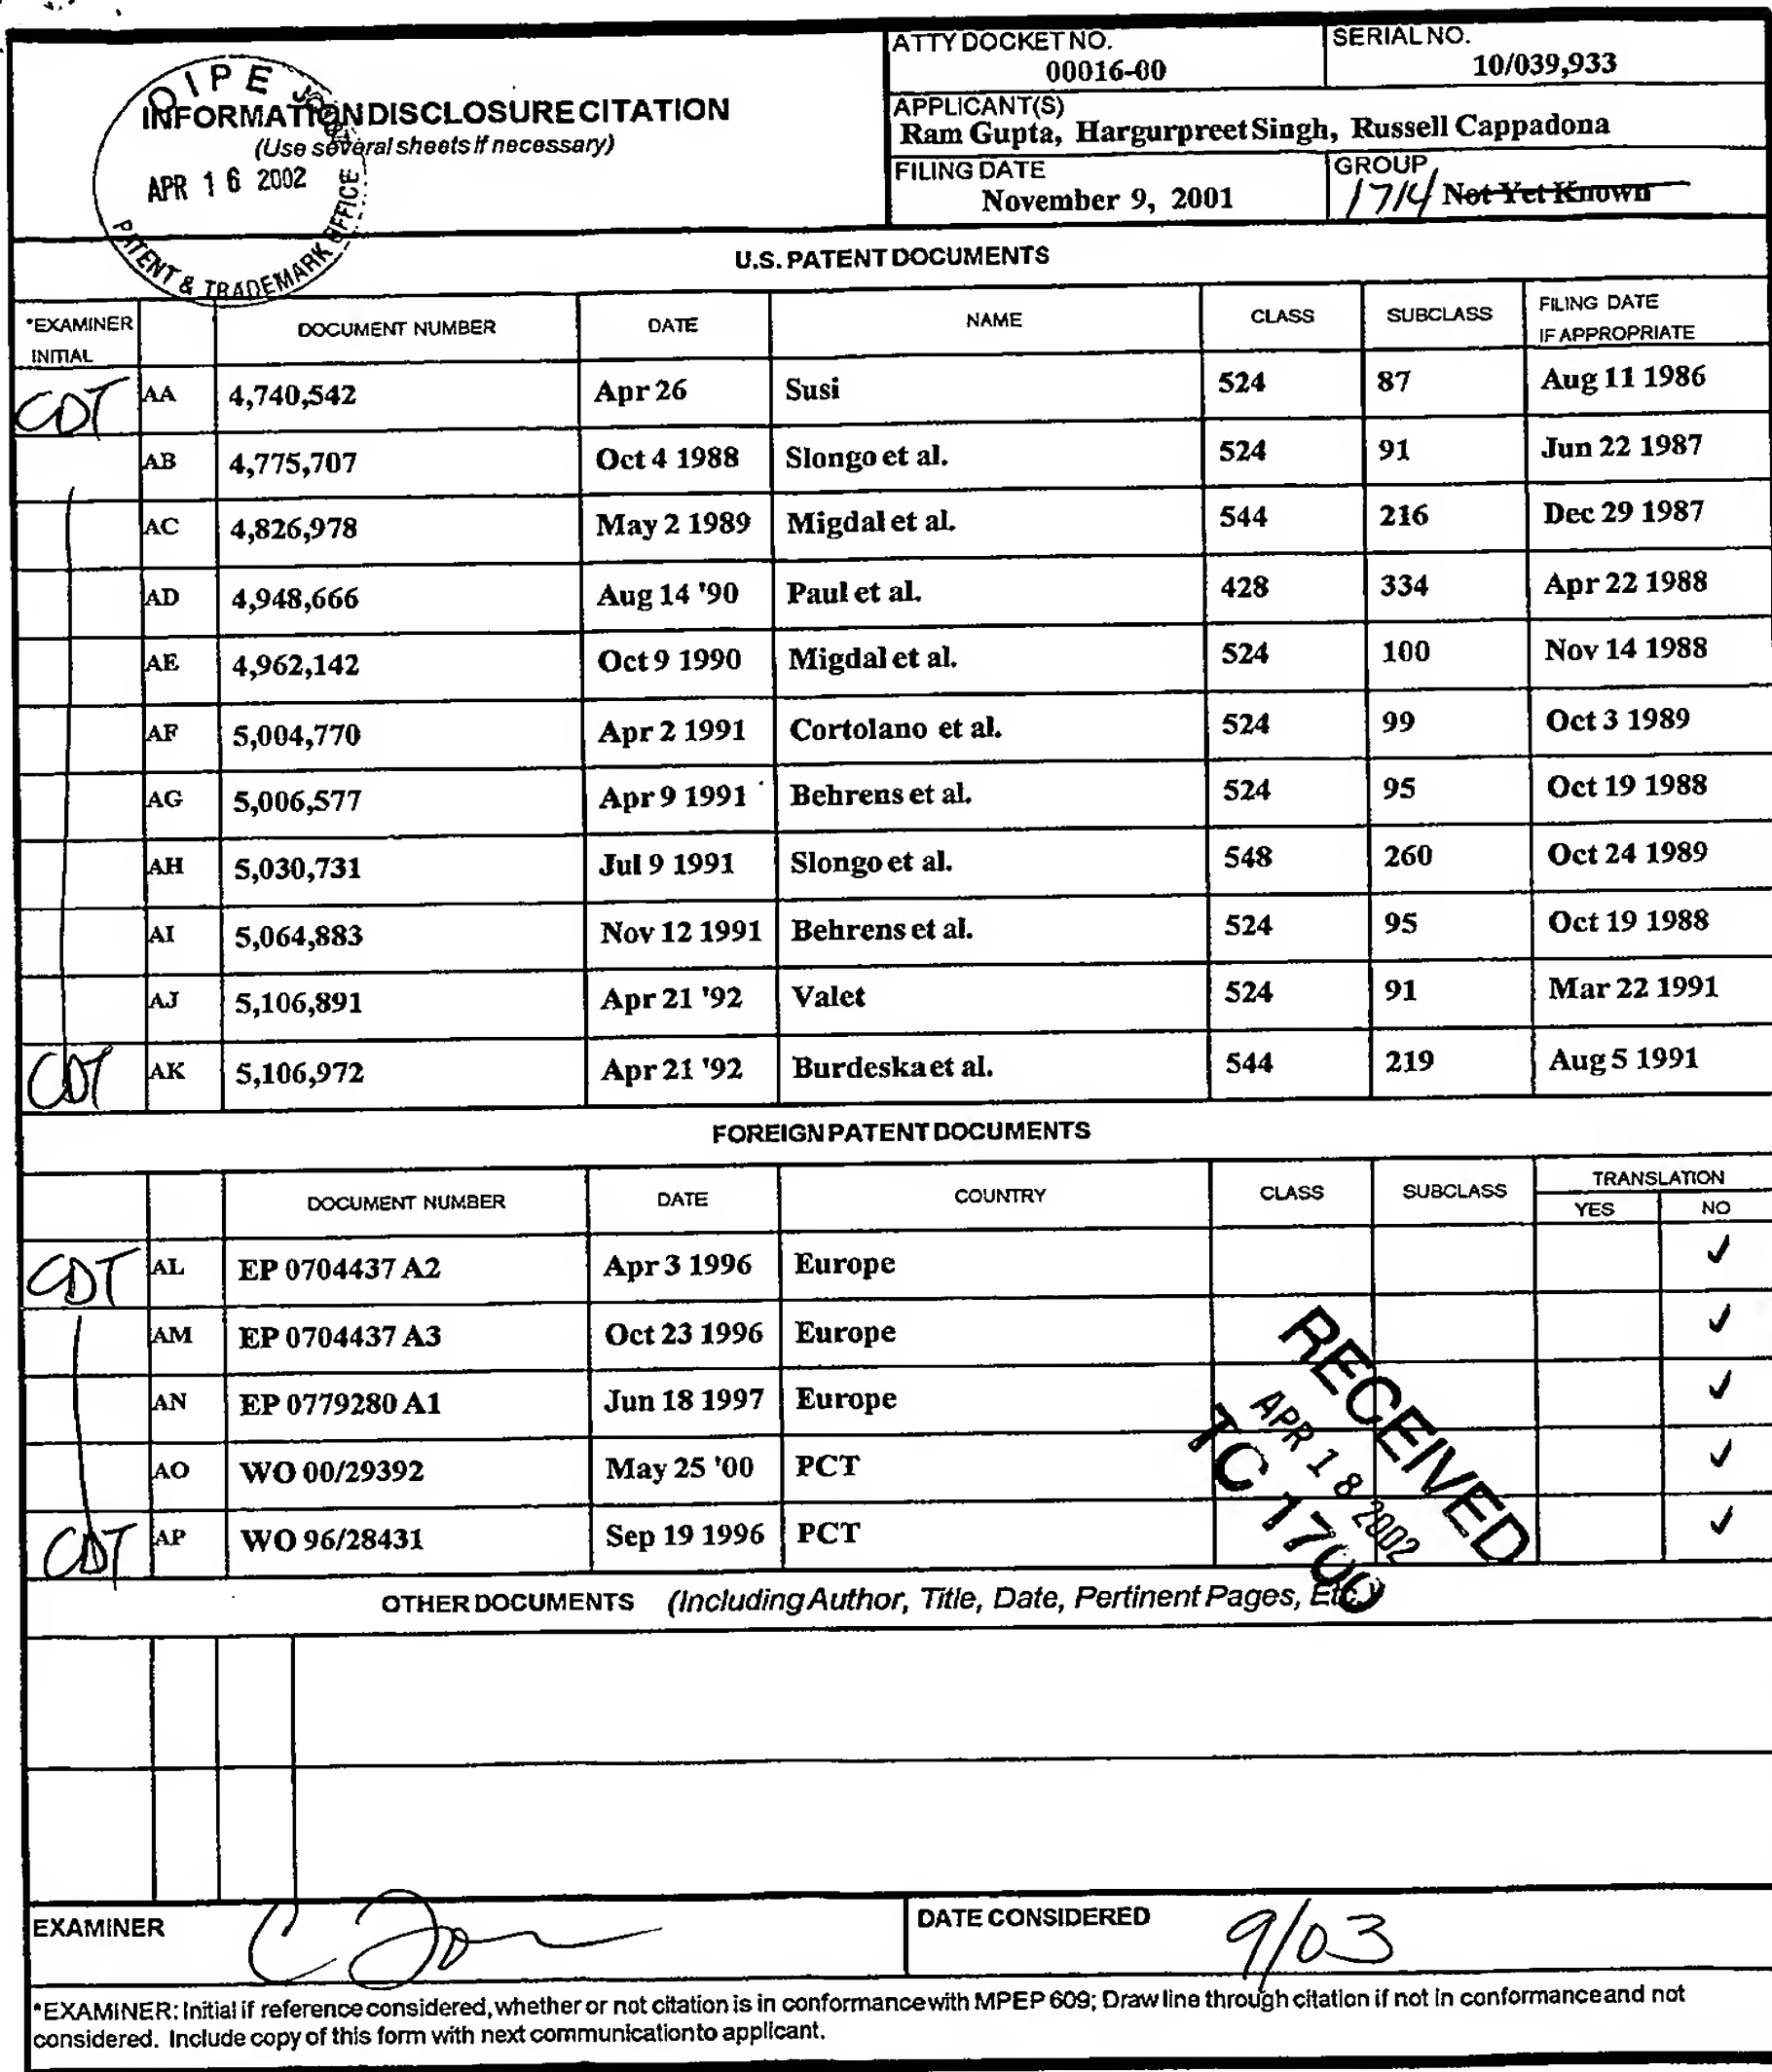 ATTY DOCKET NO.
00016-00
SERIAL NO.
10/039,933
INFORMATION DISCLOSURE CITATION
(Use several sheets if necessary)
OIPE
APR 16 2002
PATENT & TRADEMARK OFFICE
APPLICANT(S)
Ram Gupta, Hargurpreet Singh, Russell Cappadona
FILING DATE
November 9, 2001
GROUP
1714 Not Yet Known
U.S. PATENT DOCUMENTS
*EXAMINER INITIAL DOCUMENT NUMBER DATE NAME CLASS SUBCLASS FILING DATE IF APPROPRIATE
CDT AA 4,740,542 Apr 26 Susi 524 87 Aug 11 1986
AB 4,775,707 Oct 4 1988 Slongo et al. 524 91 Jun 22 1987
AC 4,826,978 May 2 1989 Migdal et al. 544 216 Dec 29 1987
AD 4,948,666 Aug 14 '90 Paul et al. 428 334 Apr 22 1988
AE 4,962,142 Oct 9 1990 Migdal et al. 524 100 Nov 14 1988
AF 5,004,770 Apr 2 1991 Cortolano et al. 524 99 Oct 3 1989
AG 5,006,577 Apr 9 1991 Behrens et al. 524 95 Oct 19 1988
AH 5,030,731 Jul 9 1991 Slongo et al. 548 260 Oct 24 1989
AI 5,064,883 Nov 12 1991 Behrens et al. 524 95 Oct 19 1988
AJ 5,106,891 Apr 21 '92 Valet 524 91 Mar 22 1991
CDT AK 5,106,972 Apr 21 '92 Burdeska et al. 544 219 Aug 5 1991
FOREIGN PATENT DOCUMENTS
DOCUMENT NUMBER DATE COUNTRY CLASS SUBCLASS TRANSLATION
YES NO
CDT AL EP 0704437 A2 Apr 3 1996 Europe ✓
AM EP 0704437 A3 Oct 23 1996 Europe ✓
AN EP 0779280 A1 Jun 18 1997 Europe ✓
AO WO 00/29392 May 25 '00 PCT ✓
CDT AP WO 96/28431 Sep 19 1996 PCT ✓
RECEIVED
APR 18 2002
TC 1700
OTHER DOCUMENTS (Including Author, Title, Date, Pertinent Pages, Etc.)
EXAMINER
DATE CONSIDERED 9/03
*EXAMINER: Initial if reference considered, whether or not citation is in conformance with MPEP 609; Draw line through citation if not in conformance and not
considered. Include copy of this form with next communication to applicant.